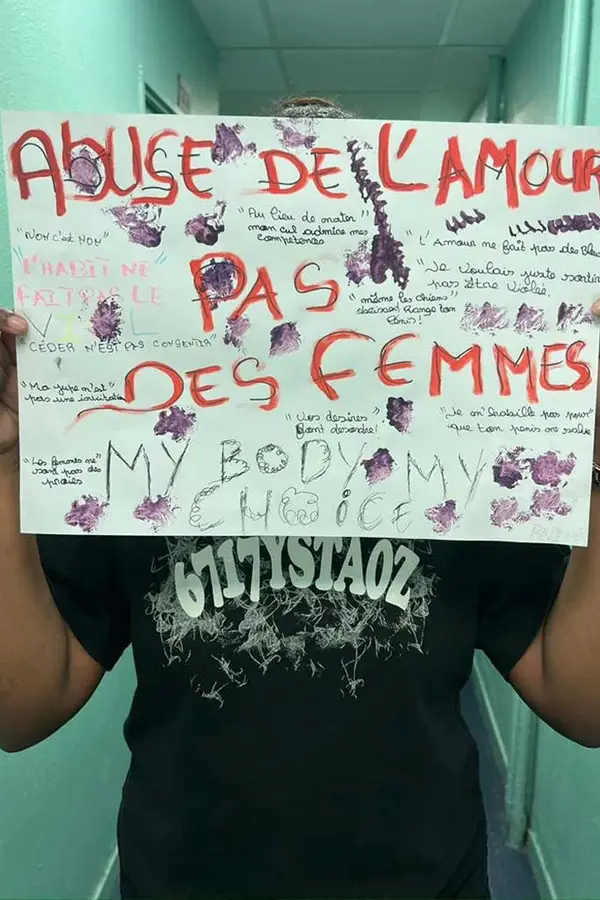 ABUSE DE L'AMOUR
"NON C'est NON"
"Au lieu de mater
mon cul admire mes
compétences"
"L'Amour ne fait pas des Bleu
"L'HABIT NE
FAIT PAS LE
VIOL"
PAS
"Je voulais juste sortir
pas être violée.
"même les chiens
obéissent Range ton
Pénis!
"CÉDER N'EST PAS CONSENTIR"
DES FEMMES
"Ma jupe n'est"
pas une invitation
"Vos désires
font désordre!
"Je m'habille pas pour"
que ton pénis me valide
"Les femmes ne"
sont pas des
proies
MY BODY MY
CHOICE
6717YSTAOZ